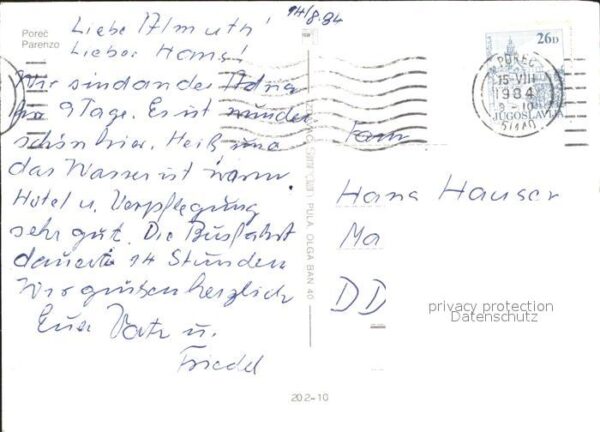 Poreč
Parenzo
14/8.84
Liebe Almuth!
Lieber Hans!
Wir sind an der Adria
für 9 Tage. Es ist wunder
schön hier. Heiß und
das Wasser ist warm.
Hotel u. Verpflegung
sehr gut. Die Busfahrt
dauerte 14 Stunden
Wir grüßen herzlich
Eure
u.
Friedel
26D
POREČ
15-VIII
1984
9-10
51440
JUGOSLAVIJA
Fam
Hans Hauser
Ma
DD
PULA OLGA BAN 40
privacy protection
Datenschutz
20 2-10